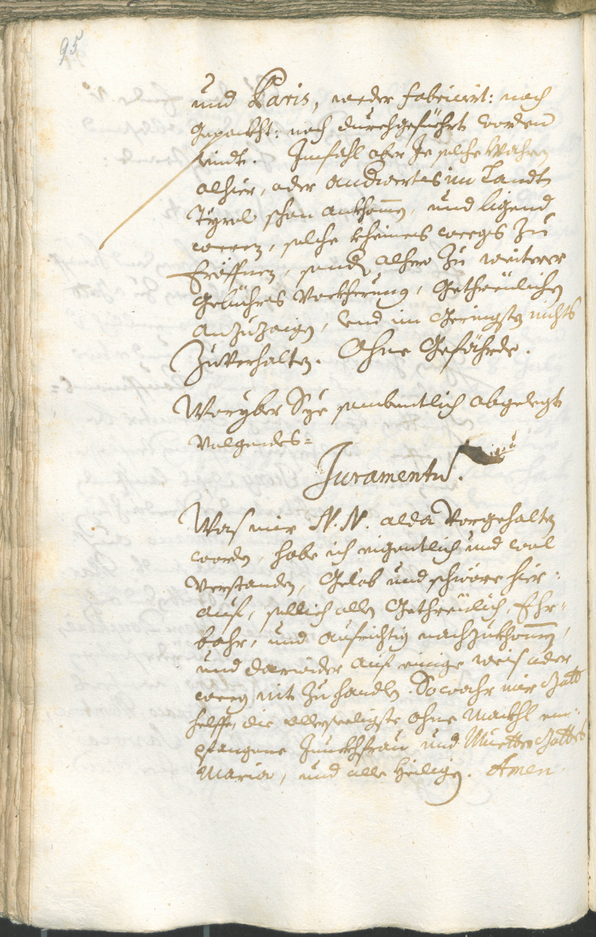 95
und Paris, weder fabriciert: noch
gepackht: noch durchgeführt worden
seindt. Imfahl aber Je solche Wahren
alhier, oder anderwerts im Landt
Tyrol schon ankhomen, und ligend
weren, solche kheines weegs zu
Eröffnen, sondern alhero zu weiterer
Gebührs Vorkherung, Getreulichen
anzuzaigen, und im Geringsten nichts
Zuverhalten. Ohne Gefährde.
Worüber Sye sambentlich abgelegt
Volgendes=
Juramentum.
Was mir N. N. alda Vorgehalten
worden, habe ich eigentlich und wol
Verstanden, Gelob und schwöre hier=
auf, sellich allen Getreulich, Ehr=
bahr, und aufrichtig nachzukhomen,
und darwider auf einige weis oder
weeg nit zu handlen. So wahr mir Gott
helffe, die allerseeligste ohne Mackhl em=
pfangene Junckhfrau und Muetter Gottes
Maria, und alle Heiligen. Amen